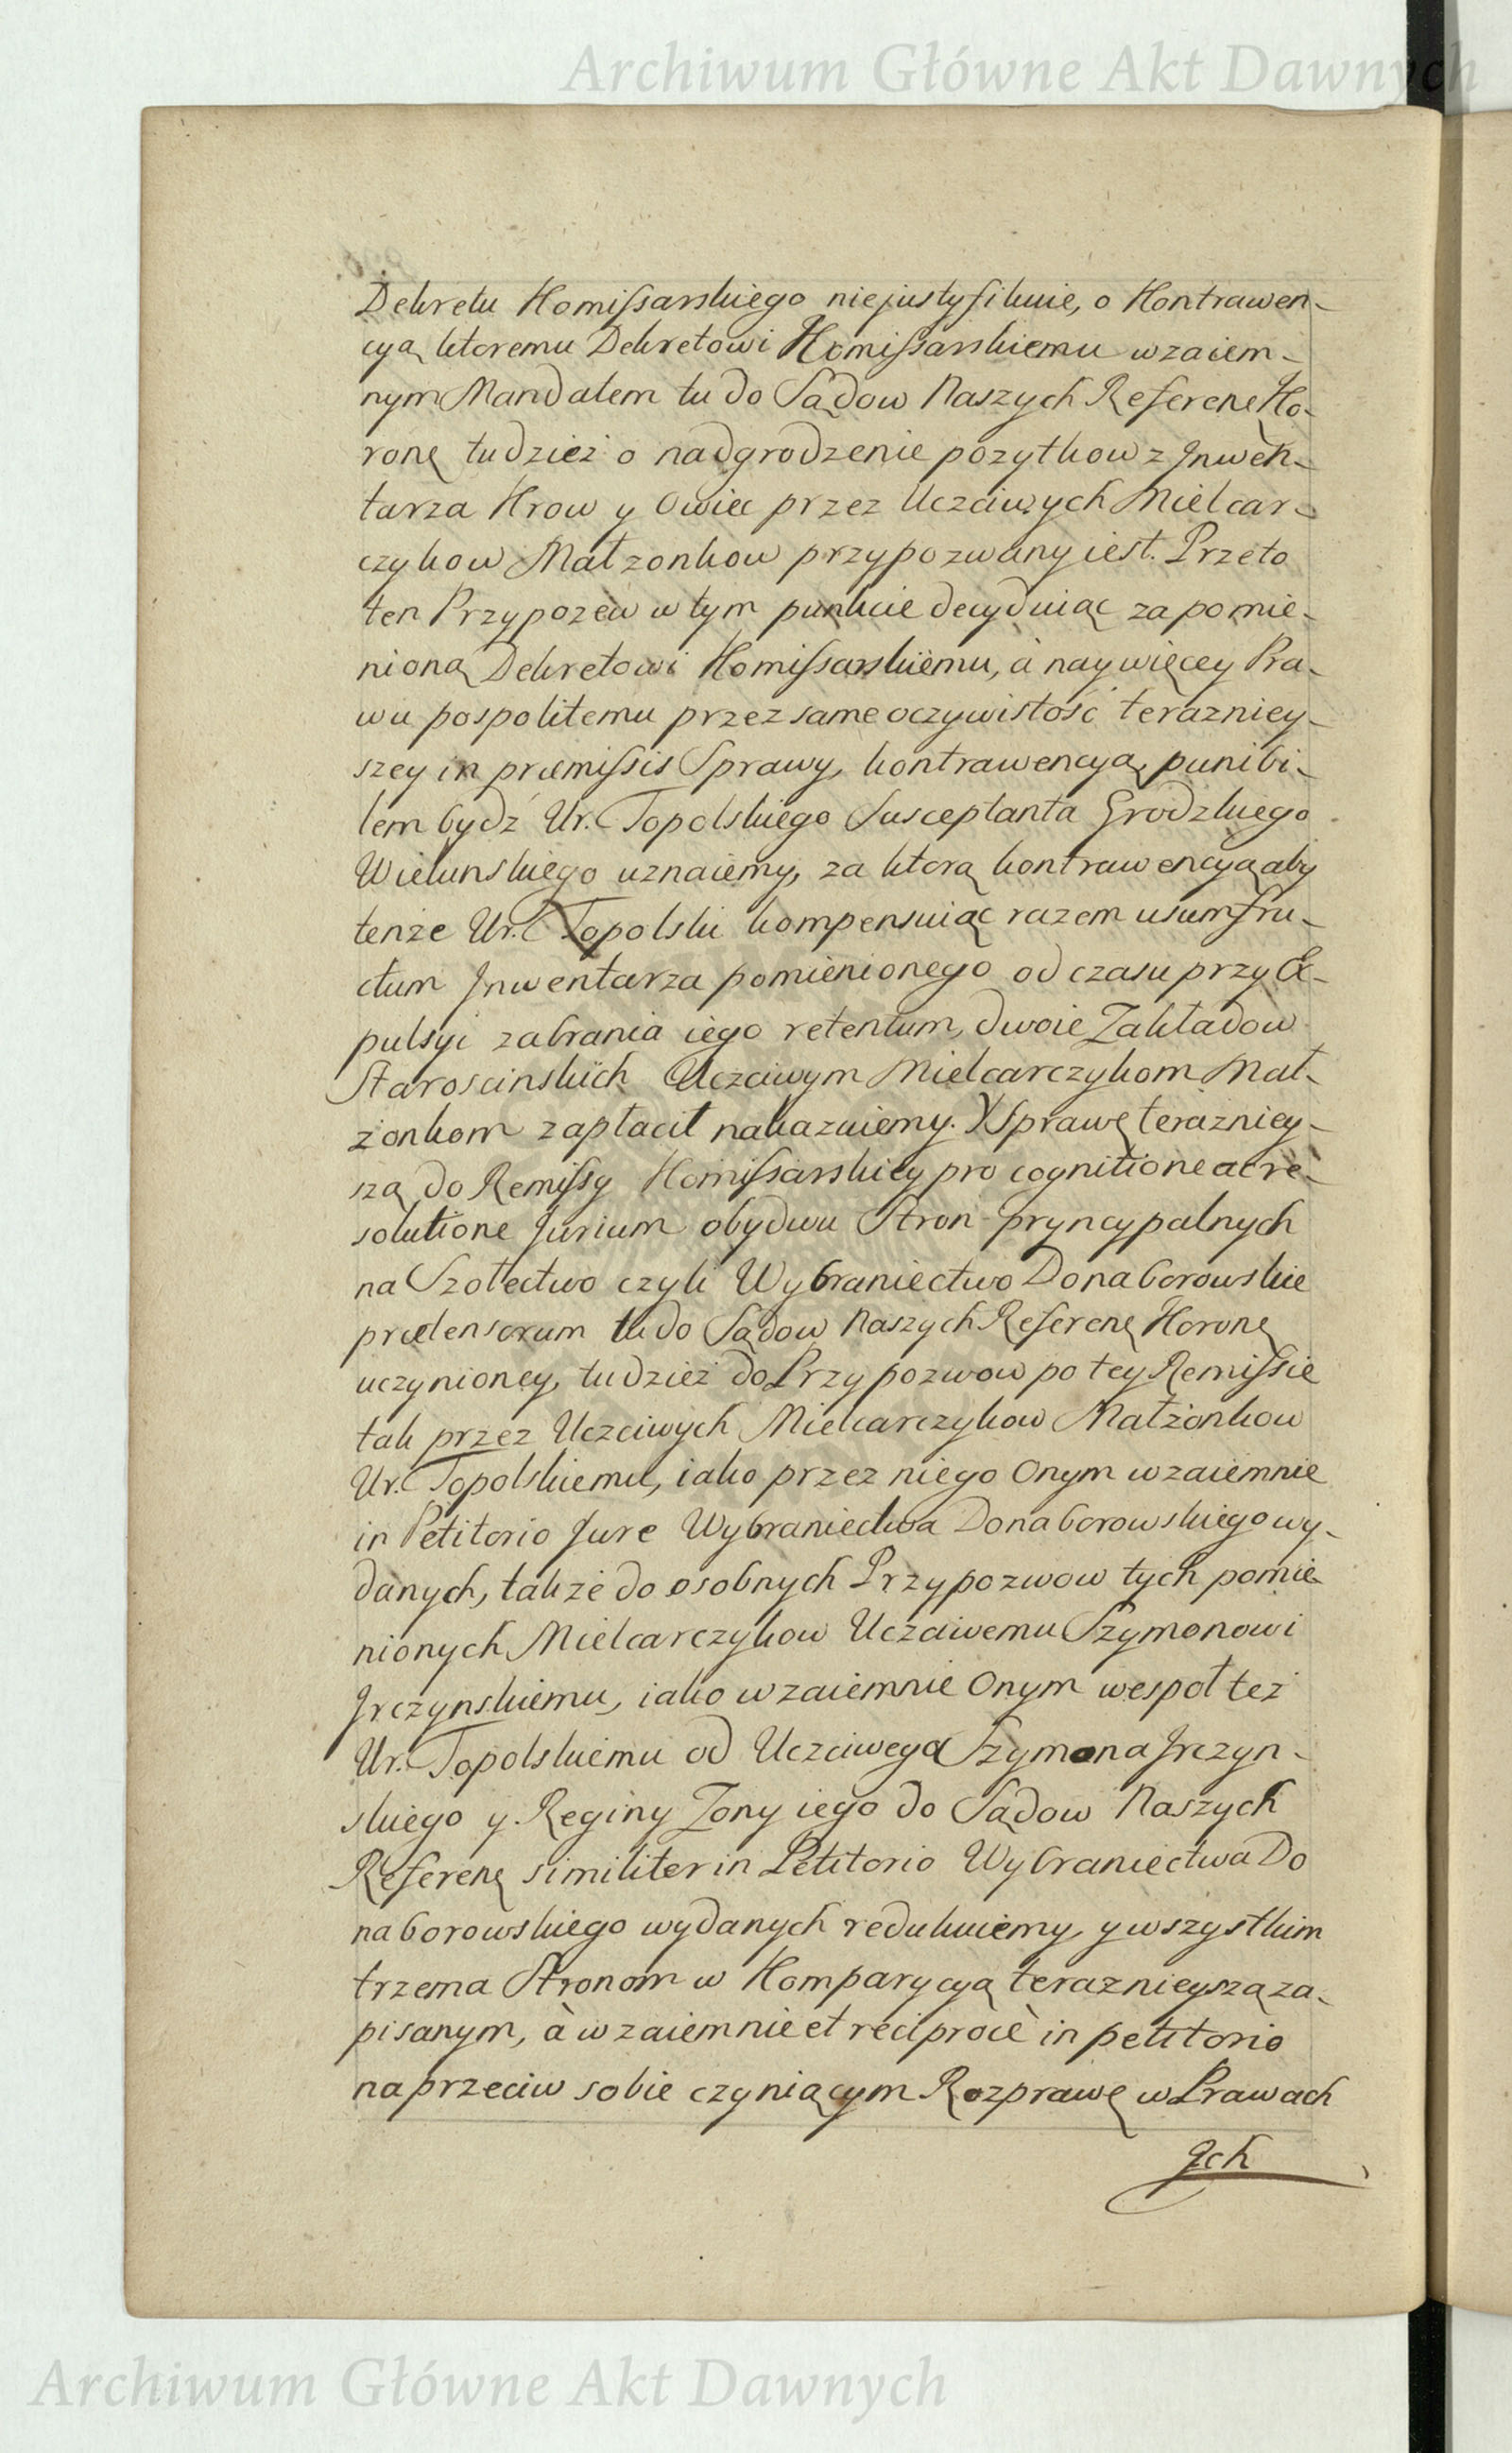 Archiwum Główne Akt Dawnych
Dekretu Komissarskiego niejustyfikuie, o Kontrawen-
cyą ktoremu Dekretowi Komissarskiemu wzaiem-
nym Mandatem tu do Sądow Naszych Referenę Ko-
ronę tudzież o nadgrodzenie pozytkow z Jnwen-
tarza Krow y Owiec przez Uczciwych Mielcar-
czykow Małzonkow przypozwany iest. Przeto
ten Przypozew w tym punkcie decyduiąc za pomie-
nioną Dekretowi Komissarskiemu, à naywięcey Pra-
wu pospolitemu przez same oczywistość terazniey-
szey in præmissis Sprawy, kontrawencyą, punibi-
lem bydź Ur. Topolskiego Susceptanta Grodzkiego
Wielunskiego uznaiemy, za ktorą kontrawencyą aby
tenże Ur. Topolski kompensuiąc razem usumfru-
ctum Jnwentarza pomienionego od czasu przy Ex-
pulsyi zabrania iego retentum, dwoie Zakładow
Staroscinskich Uczciwym Mielcarczykom Mał-
żonkom zapłacił nakazuiemy. Y Sprawę terazniey-
szą do Remissy Komissarskiey pro cognitione ac re-
solutione Jurium obydwu Stron pryncypalnych
na Szołectwo czyli Wybraniectwo Donaborowskie
prætensorum tu do Sądow Naszych Referenę Koronę
uczynioney, tudzież do Przypozwow po tey Remissie
tak przez Uczciwych Mielcarczykow Małżonkow
Ur. Topolskiemu, iako przez niego Onym wzaiemnie
in Petitorio Jure Wybraniectwa Donaborowskiego wy-
danych, także do osobnych Przypozwow tych pomie-
nionych Mielcarczykow Uczciwemu Szymonowi
Jrczynskiemu, iako wzaiemnie Onym wespoł też
Ur. Topolskiemu od Uczciwego Szymona Jrczyn-
skiego y Reginy Zony iego do Sądow Naszych
Referenę similiter in Petitorio Wybraniectwa Do
naborowskiego wydanych redukuiemy, y wszystkim
trzema Stronom w Komparycyą teraznieyszą za-
pisanym, à wzaiemnie et reciprocè in petitorio
naprzeciw sobie czyniącym Rozprawę w Prawach
Jch
Archiwum Główne Akt Dawnych